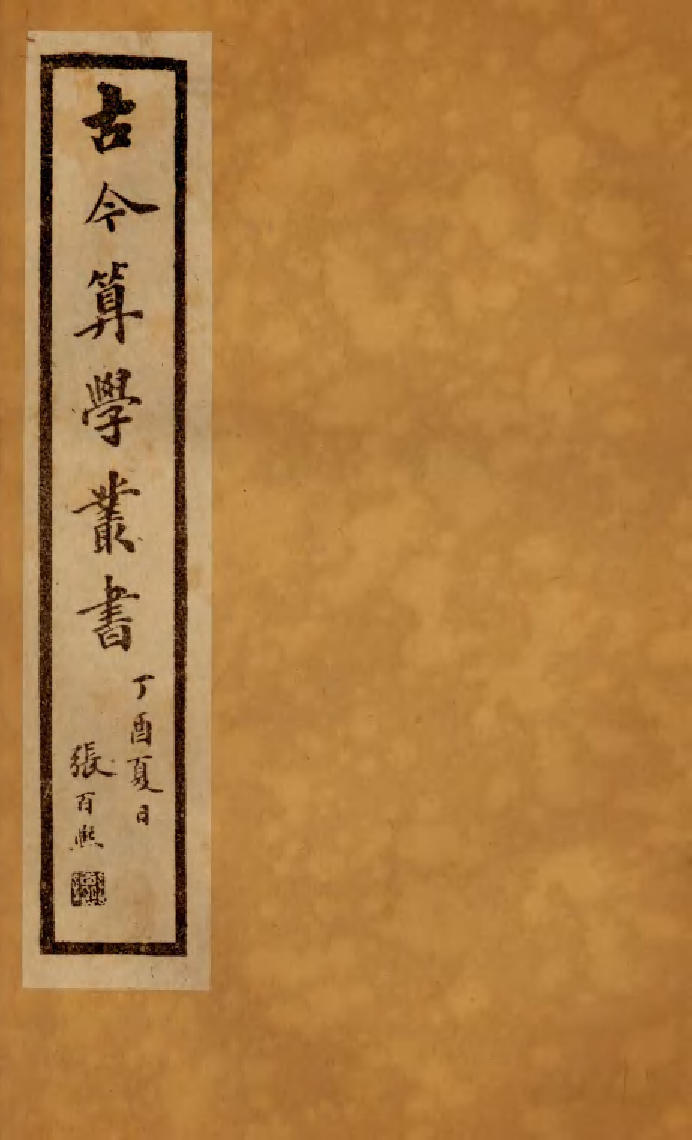 古今算學叢書
丁酉夏日
張百熙